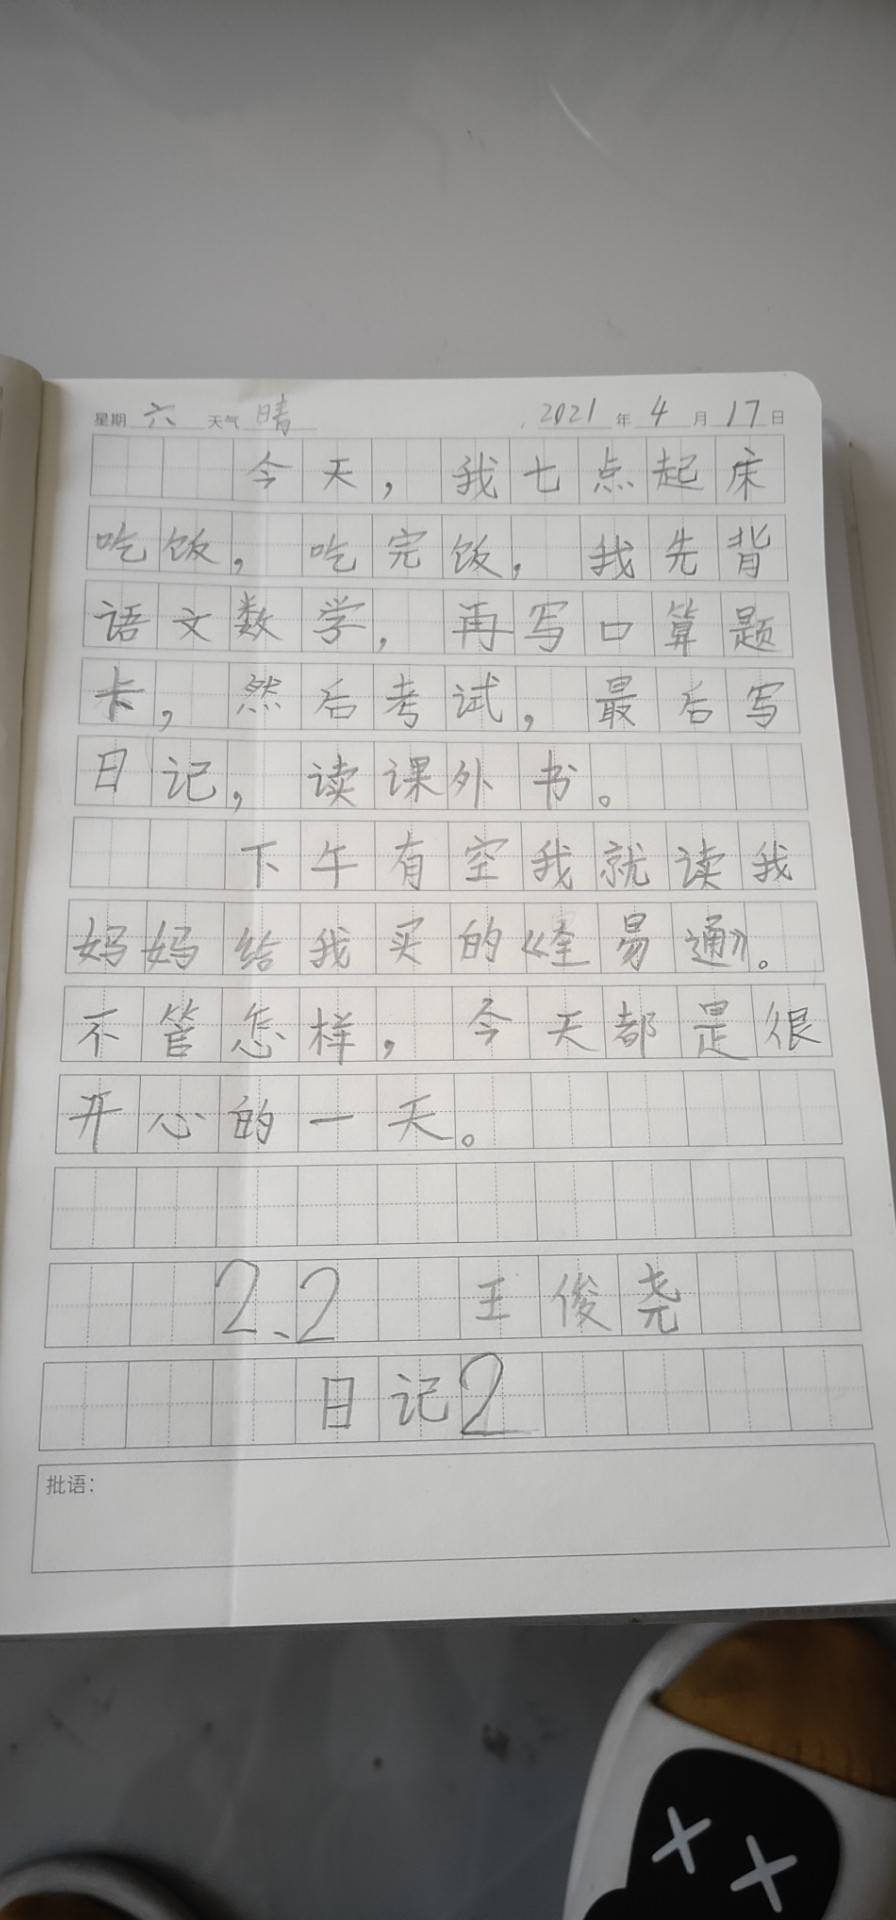 星期 六 天气 晴 2021 年 4 月 17 日
今天，我七点起床
吃饭，吃完饭，我先背
语文数学，再写口算题
卡，然后考试，最后写
日记，读课外书。
下午有空我就读我
妈妈给我买的《奎易通》。
不管怎样，今天都是很
开心的一天。
2.2 王俊尧
日记2
批语：